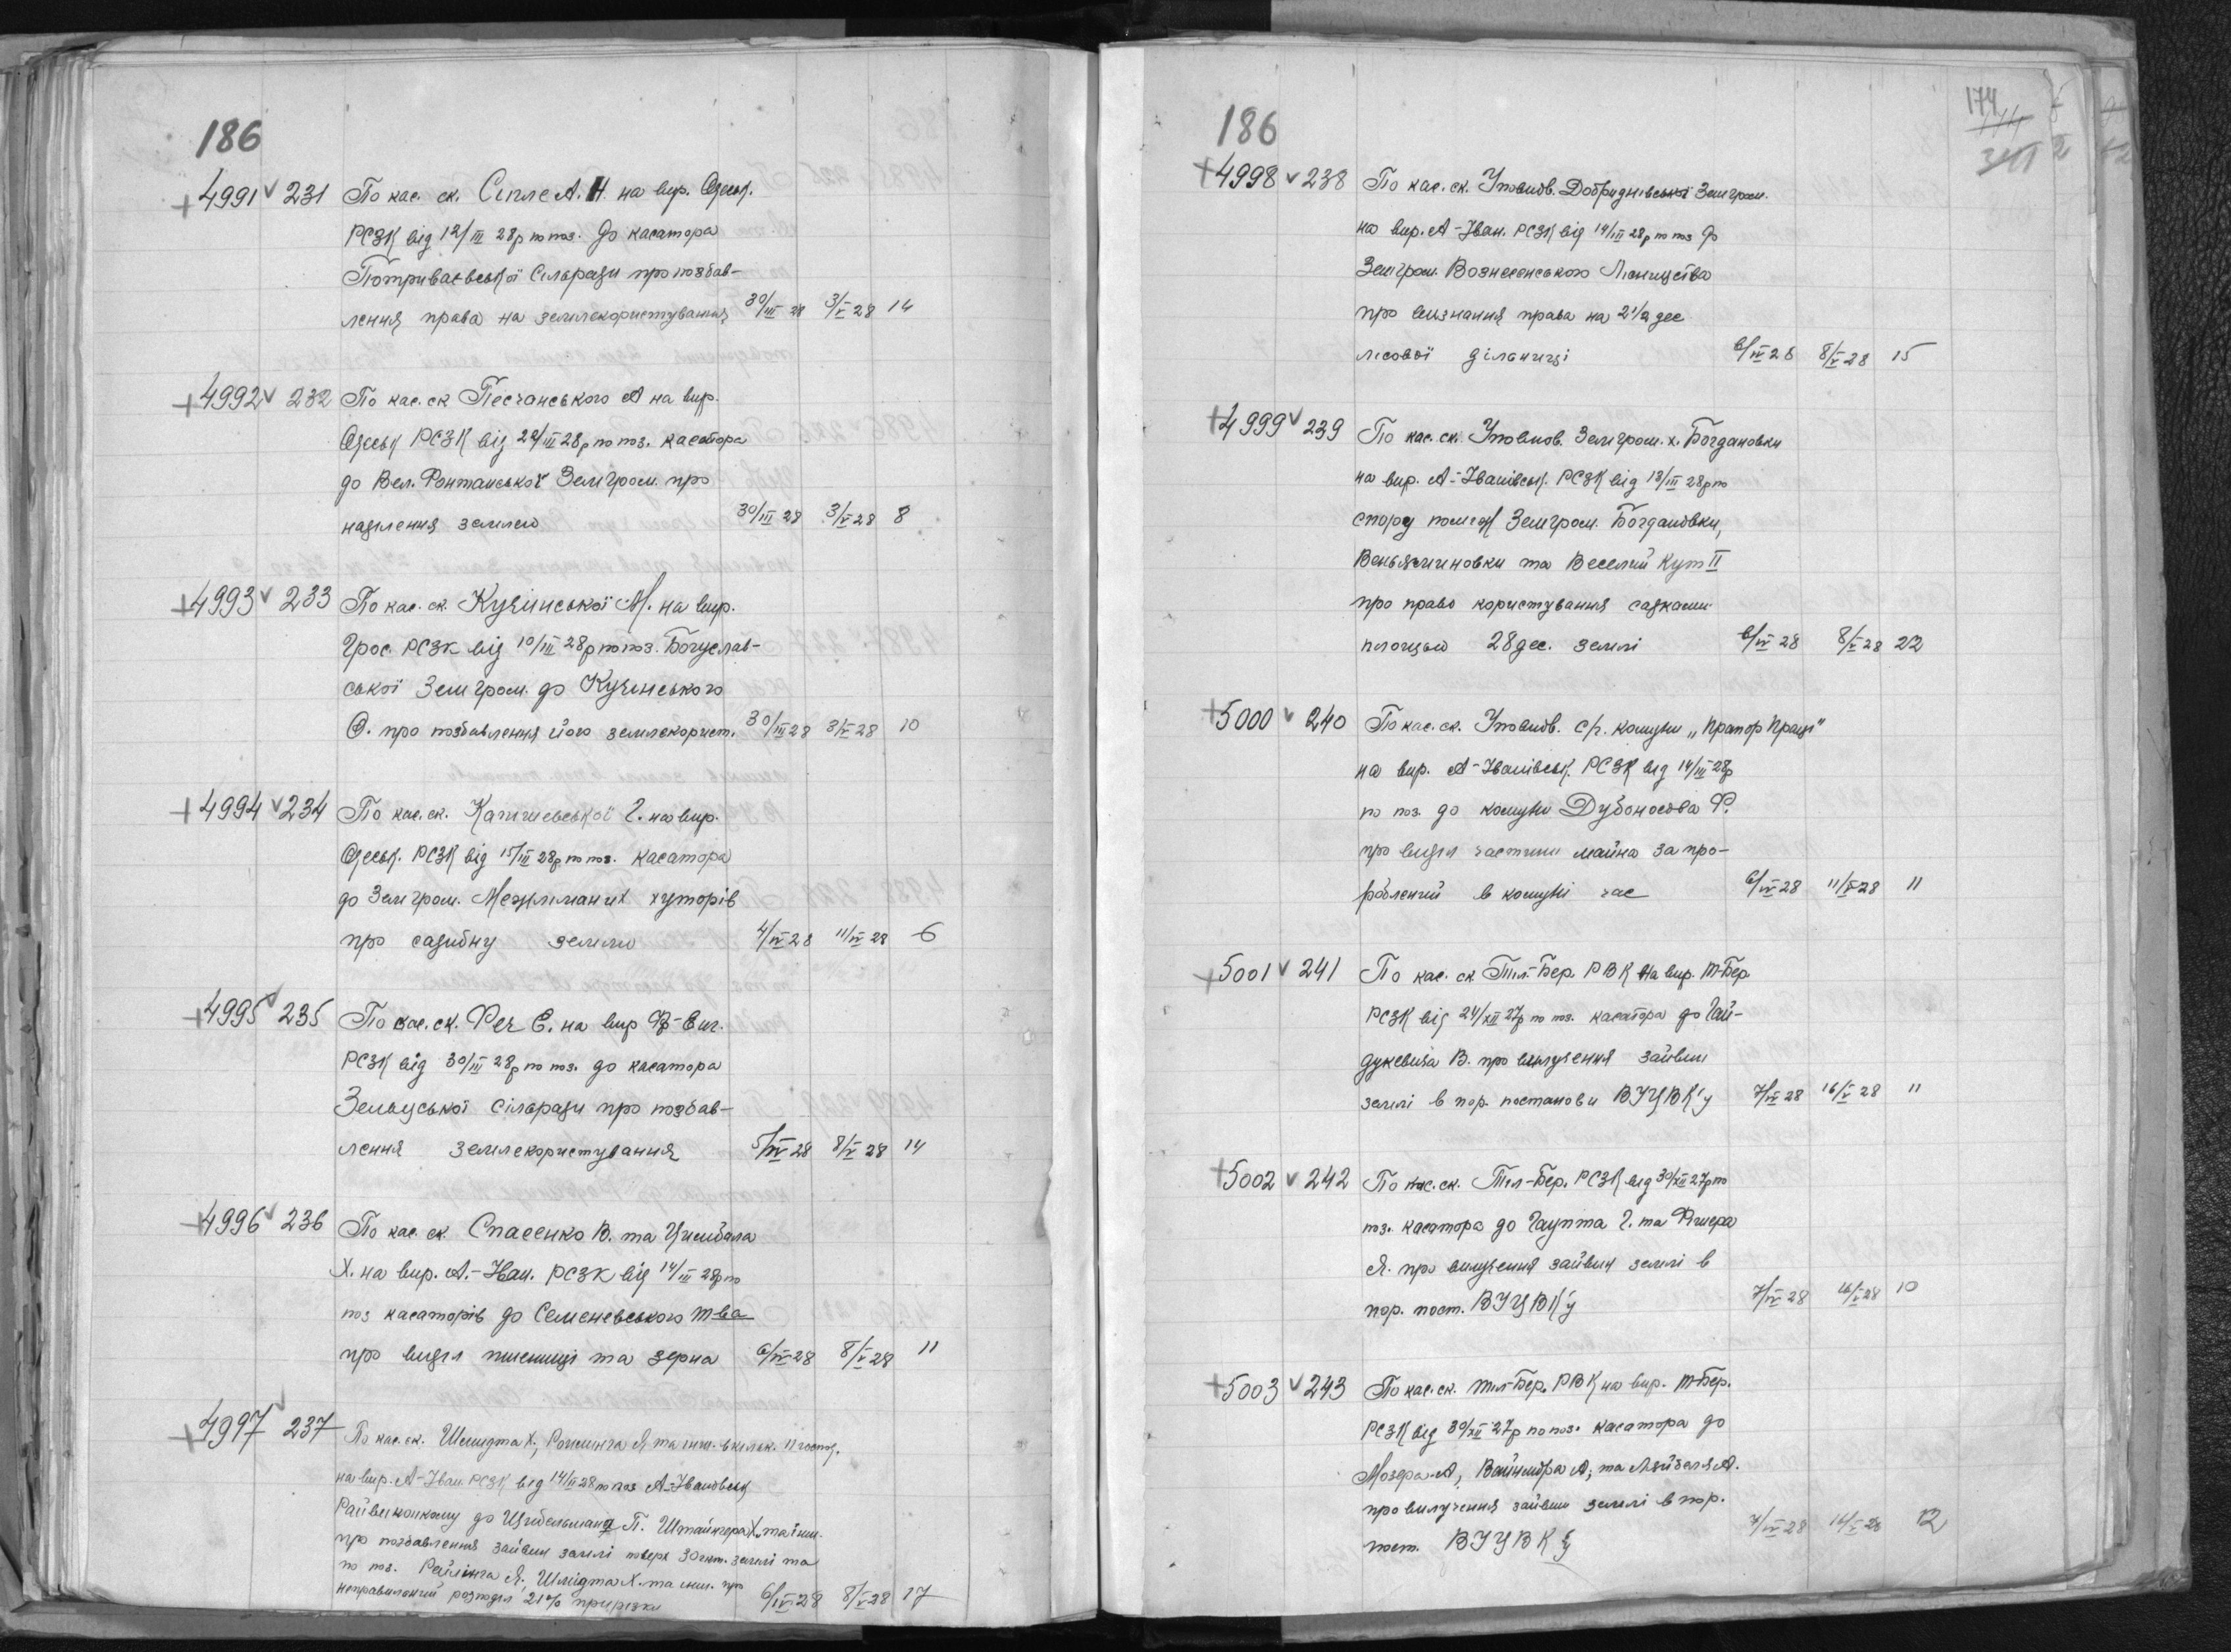 186
4991 231 По кас. ск. Сіпле А. Н. на вир. Одеськ.
РСЗК від 12/III 28р по поз. до касатора
Потриваєвської Сільради про позбав-
лення права на землекористування 30/III 28 3/V 28 14
4992 232 По кас. ск Песчанського А на вир.
Одеськ РСЗК від 22/III 28р по поз. касатора
до Вел. Фонтанської Земгром. про
наділення землею 30/III 28 3/V 28 8
4993 233 По кас. ск. Кучинської М. на вир.
Грос. РСЗК від 10/III 28р по поз. Богуслав-
ської Земгром. до Кучинського
О. про позбавлення його землекорист. 30/III 28 3/V 28 10
4994 234 По кас. ск. Капишевської Г. на вир.
Одеськ. РСЗК від 15/III 28р по поз. касатора
до Земгром. хуторів
про садибну землю 4/IV 28 11/IV 28 6
4995 235 По кас. ск. Феч Е. на вир Ф-Енг.
РСЗК від 30/III 28р по поз. до касатора
Зельцської сільради про позбав-
лення землекористування 5/IV 28 8/V 28 14
4996 236 По кас. ск. Спасенко В. та Цимбала
Х. на вир. А.-Іван. РСЗК від 14/III 28р по
поз касаторів до Семеневського т-ва
про виділ пшениці та зерна 6/IV 28 8/V 28 11
4997 237 По кас. ск. Шмидта Х., Я та інш. в кільк. 11 госпд.
на вир. А-Іван РСЗК від 14/II 28 по поз А-Івановськ
Райвиконкому до П. Штайнгера Х. та інш.
про позбавлення зайвин землі поверх 30 гект. землі та
по поз. Я, Шмідта Х. та інш. про
неправильний розподіл 21% прирізки 6/IV 28 8/V 28 17
174
186
4998 238 По кас. ск. Уповнов. Земгром.
на вир. А-Іван. РСЗК від 14/III 28р по поз до
Земгром. Вознесенського Лісництва
про визнання права на 2 1/2 дес
лісової дільниці 6/IV 28 8/V 28 15
4999 239 По кас. ск. Уповнов. Земгром. х. Богдановки
на вир. А-Іванівськ. РСЗК від 13/III 28р по
спору поміж Земгром. Богдановки,
Веньяминовки та Веселий Кут II
про право користування садками
площею 28 дес. землі 6/IV 28 8/V 28 22
5000 240 По кас. ск. Уповнов. с/г. комуни „Прапор Праці"
на вир. А-Іванівськ. РСЗК від 14/III 28р
по поз. до комуни Дубоносова Ф.
про виділ частини майна за про-
роблений в комуні час 6/IV 28 11/V 28 11
5001 241 По кас. ск Тил-Бер. РВК на вир. Т-Бер
РСЗК від 24/XII 27р по поз. касатора до Гай-
дукевича В. про вилучення зайвин
землі в пор. постанови ВУЦВК'у 7/IV 28 16/V 28 11
5002 242 По кас. ск. Тил-Бер. РСЗК від 30/XII 27р по
поз. касатора до Гаупта Г. та Фишера
Я. про вилучення зайвин землі в
пор. пост. ВУЦВК'у 7/IV 28 16/V 28 10
5003 243 По кас. ск. Тил-Бер. РВК на вир. Т-Бер.
РСЗК від 30/XII 27р по поз. касатора до
Мозера А, А, та А.
про вилучення зайвин землі в пор.
пост. ВУЦВК'у 7/IV 28 16/V 28 12